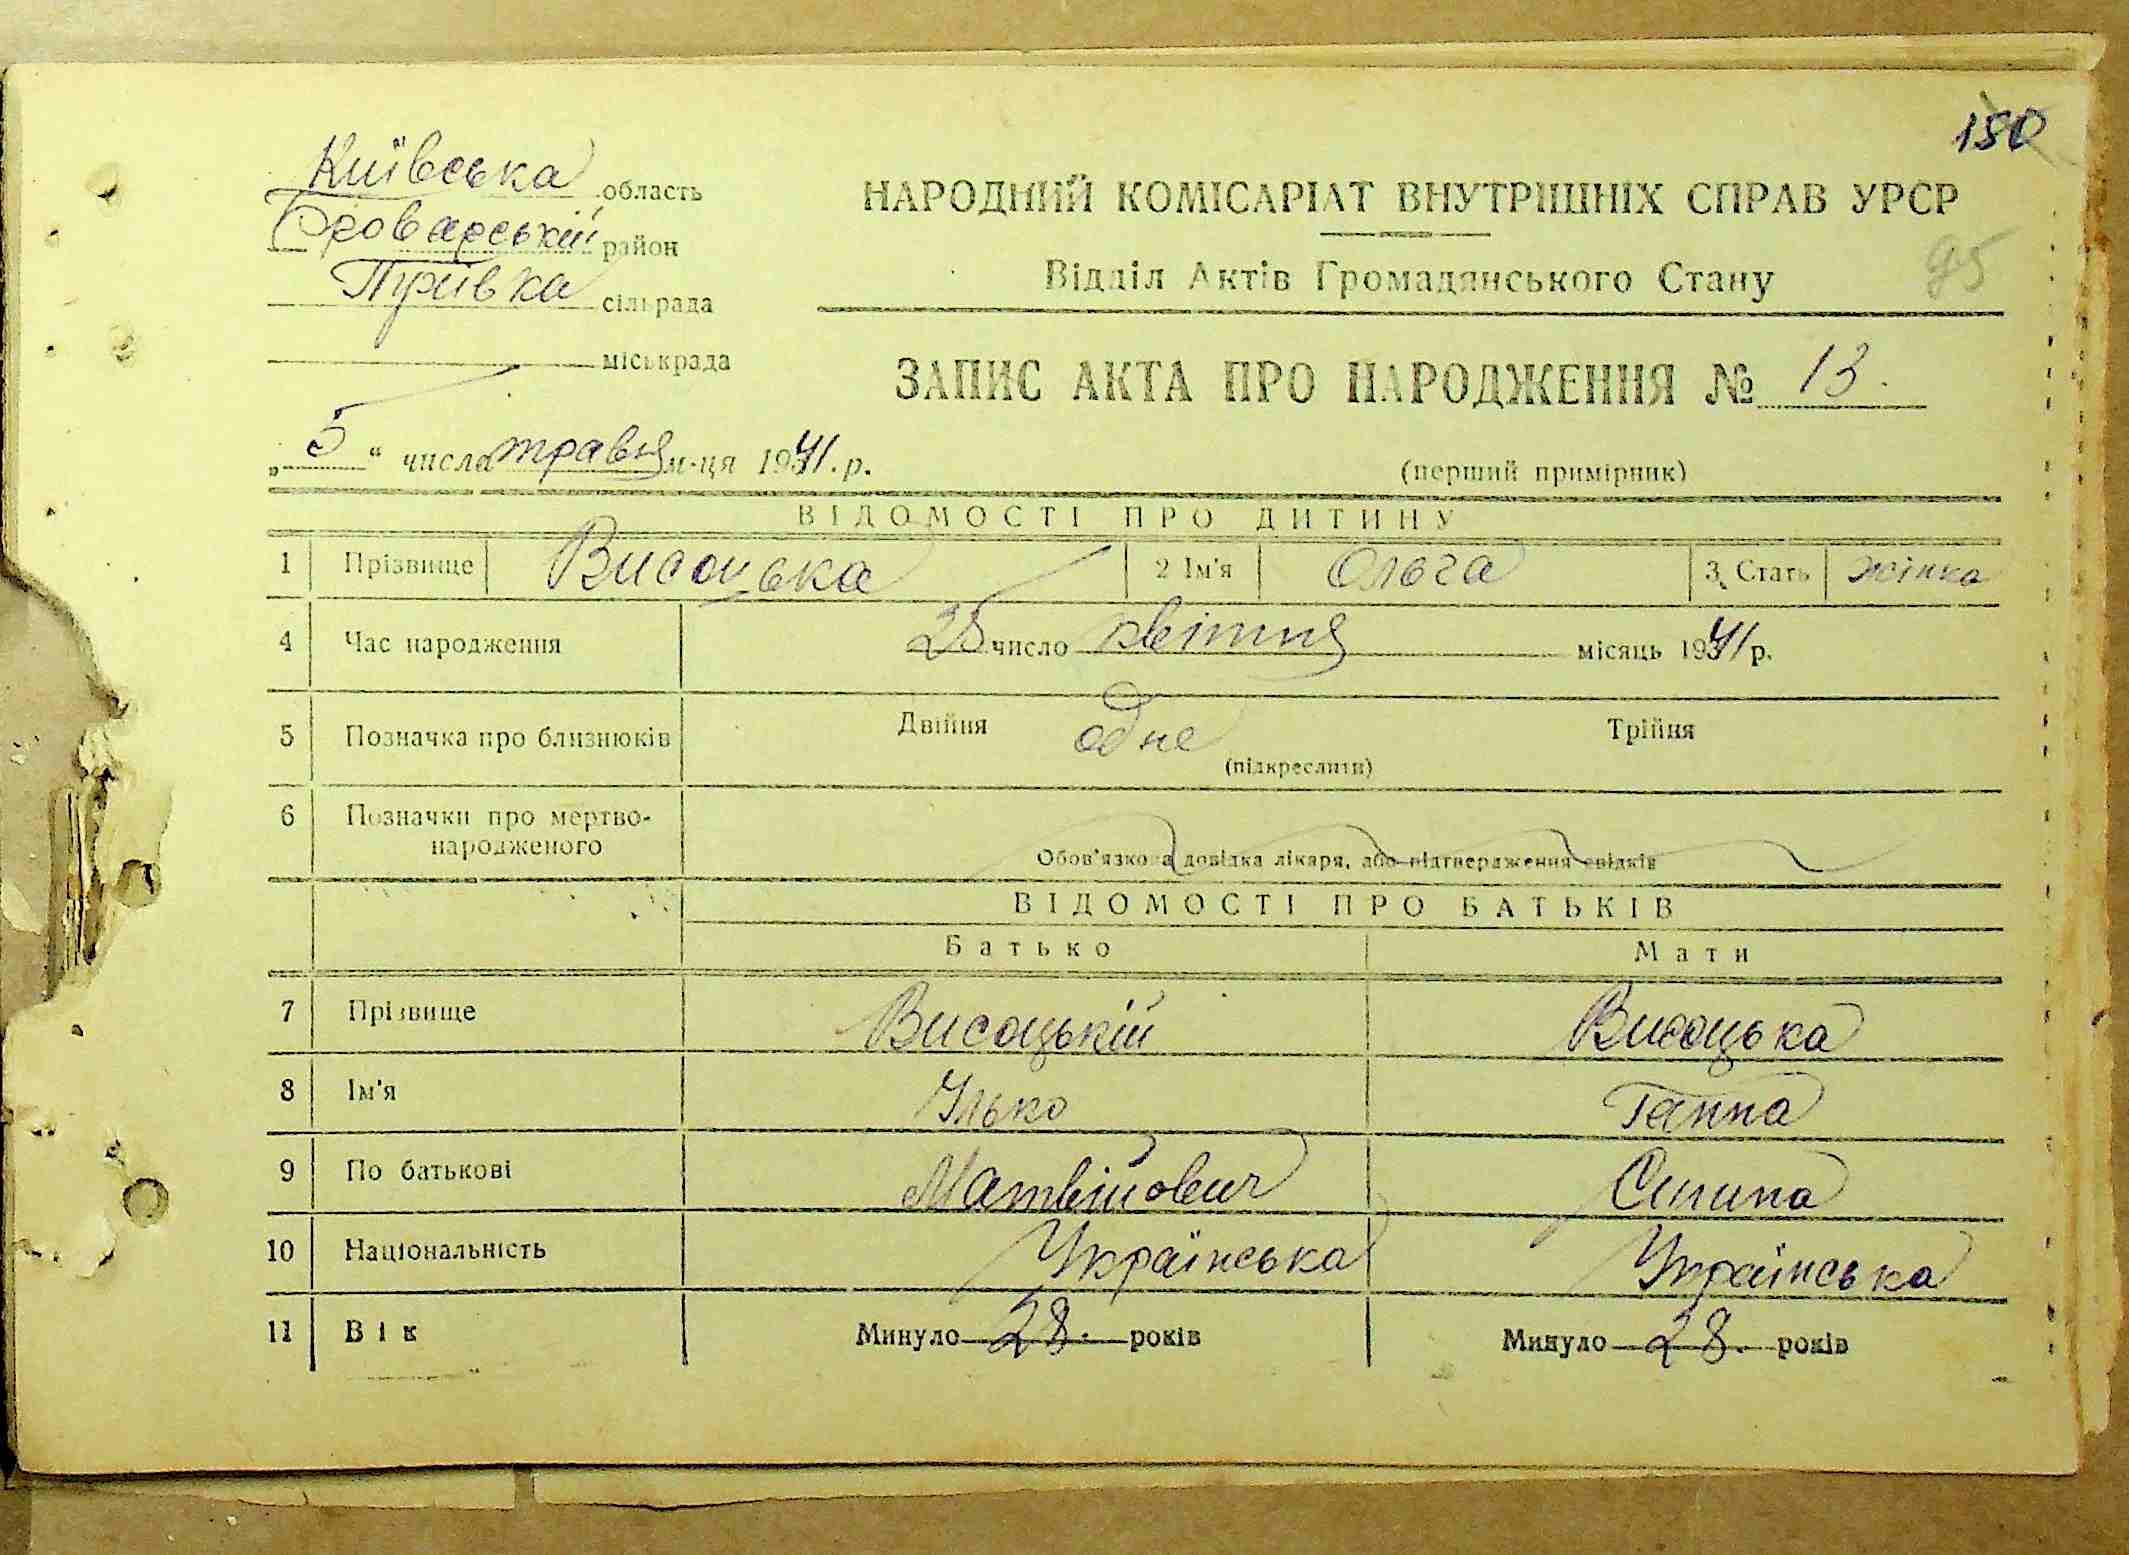 150
Київська область
Броварській район
НАРОДНИЙ КОМІСАРІАТ ВНУТРІШНІХ СПРАВ УРСР
95
Відділ Актів Громадянського Стану
сільрада
міськрада
ЗАПИС АКТА ПРО НАРОДЖЕННЯ № 13.
„ 5 “ числа травня м-ця 1941. р.
(перший примірник)
ВІДОМОСТІ ПРО ДИТИНУ
1 Прізвище Висоцька 2 Ім'я Ольга 3. Стать жінка
4 Час народження число квітня місяць 1941 р.
5 Позначка про близнюків Двійня одне Трійня
(підкреслити)
6 Позначки про мертво-
народженого
Обов'язкова довідка лікаря, або підтвердження свідків
ВІДОМОСТІ ПРО БАТЬКІВ
Батько Мати
7 Прізвище Висоцькій Висоцька
8 Ім'я Ілько Ганна
9 По батькові Матвійович
10 Національність Українська Українська
11 Вік Минуло 28. років Минуло 28. років